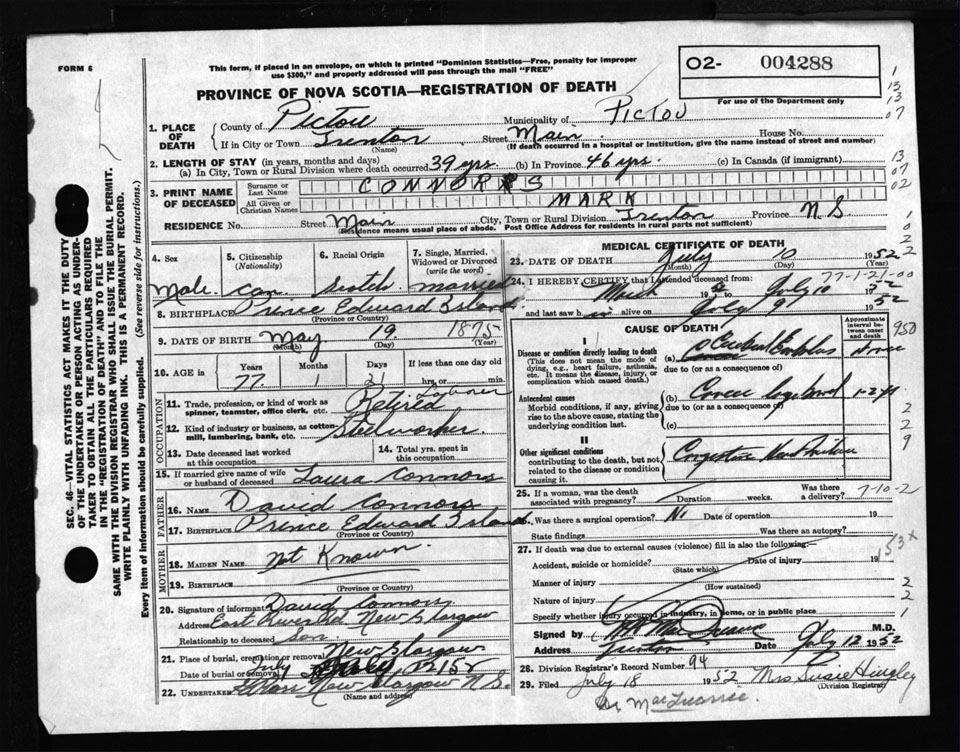 FORM 6
This form, if placed in an envelope, on which is printed "Dominion Statistics—Free, penalty for improper
use $300," and properly addressed will pass through the mail "FREE"
O2- 004288
For use of the Department only
PROVINCE OF NOVA SCOTIA—REGISTRATION OF DEATH
1. PLACE OF DEATH
County of Pictou Municipality of Pictou
If in City or Town Trenton Street Main House No.
(Name) (If death occurred in a hospital or institution, give the name instead of street and number)
2. LENGTH OF STAY (in years, months and days)
(a) In City, Town or Rural Division where death occurred 39 yrs. (b) In Province 46 yrs. (c) In Canada (if immigrant)
3. PRINT NAME OF DECEASED
Surname or Last Name CONNORS
All Given or Christian Names MARK
RESIDENCE No. Street Main City, Town or Rural Division Trenton Province N.S
(Residence means usual place of abode. Post Office Address for residents in rural parts not sufficient)
4. Sex 5. Citizenship (Nationality) 6. Racial Origin 7. Single, Married, Widowed or Divorced (write the word)
Male. Can. Scotch married
8. BIRTHPLACE Prince Edward Island
(Province or Country)
9. DATE OF BIRTH May 19 1875
(Month) (Day) (Year)
10. AGE in Years Months Days If less than one day old
77 1 21 hrs. or min.
OCCUPATION
11. Trade, profession, or kind of work as spinner, teamster, office clerk, etc. Retired
12. Kind of industry or business, as cotton-mill, lumbering, bank, etc. Steelworker
13. Date deceased last worked at this occupation 14. Total yrs. spent in this occupation
15. If married give name of wife or husband of deceased Laura Connors
FATHER
16. NAME David Connors
17. BIRTHPLACE Prince Edward Island
(Province or Country)
MOTHER
18. MAIDEN NAME Not Known
19. BIRTHPLACE
(Province or Country)
20. Signature of informant David Connors
Address East River Rd New Glasgow
Relationship to deceased Son
21. Place of burial, cremation or removal New Glasgow
Date of burial or removal July 12 1952
22. Undertaker New Glasgow N.S.
(Name and address)
MEDICAL CERTIFICATE OF DEATH
23. DATE OF DEATH July 10 1952
(Month) (Day) (Year)
77-1-21-00
24. I HEREBY CERTIFY that I attended deceased from:
March 52 July 10 1952
and last saw h im alive on July 9 1952
CAUSE OF DEATH
Approximate interval between onset and death
I
Disease or condition directly leading to death
(This does not mean the mode of dying, e.g., heart failure, asthenia, etc. It means the disease, injury, or complication which caused death.)
(a)
due to (or as a consequence of)
Antecedent causes
Morbid conditions, if any, giving rise to the above cause, stating the underlying condition last.
(b) 1-2 yrs
due to (or as a consequence of)
(c)
II
Other significant conditions
contributing to the death, but not related to the disease or condition causing it.
Congestive Heart Failure
25. If a woman, was the death associated with pregnancy? Duration weeks. Was there a delivery?
7-10-2
26. Was there a surgical operation? No Date of operation 19
State findings Was there an autopsy?
27. If death was due to external causes (violence) fill in also the following:
Accident, suicide or homicide? Date of injury 19
(State which)
Manner of injury
(How sustained)
Nature of injury
Specify whether injury occurred in industry, in home, or in public place
Signed by M.D.
Address Trenton Date July 12 1952
28. Division Registrar's Record Number 94
29. Filed July 18 1952 Mrs Susie Hingley
(Division Registrar)
Dr MacQuarrie
SEC. 46—VITAL STATISTICS ACT MAKES IT THE DUTY
OF THE UNDERTAKER OR PERSON ACTING AS UNDER-
TAKER TO OBTAIN ALL THE PARTICULARS REQUIRED
IN THE "REGISTRATION OF DEATH" AND TO FILE THE
SAME WITH THE DIVISION REGISTRAR WHO SHALL ISSUE THE BURIAL PERMIT.
WRITE PLAINLY WITH UNFADING INK. THIS IS A PERMANENT RECORD.
Every item of information should be carefully supplied. (See reverse side for instructions.)
1
13
13
07
13
07
02
950
2
2
9
2
2
1